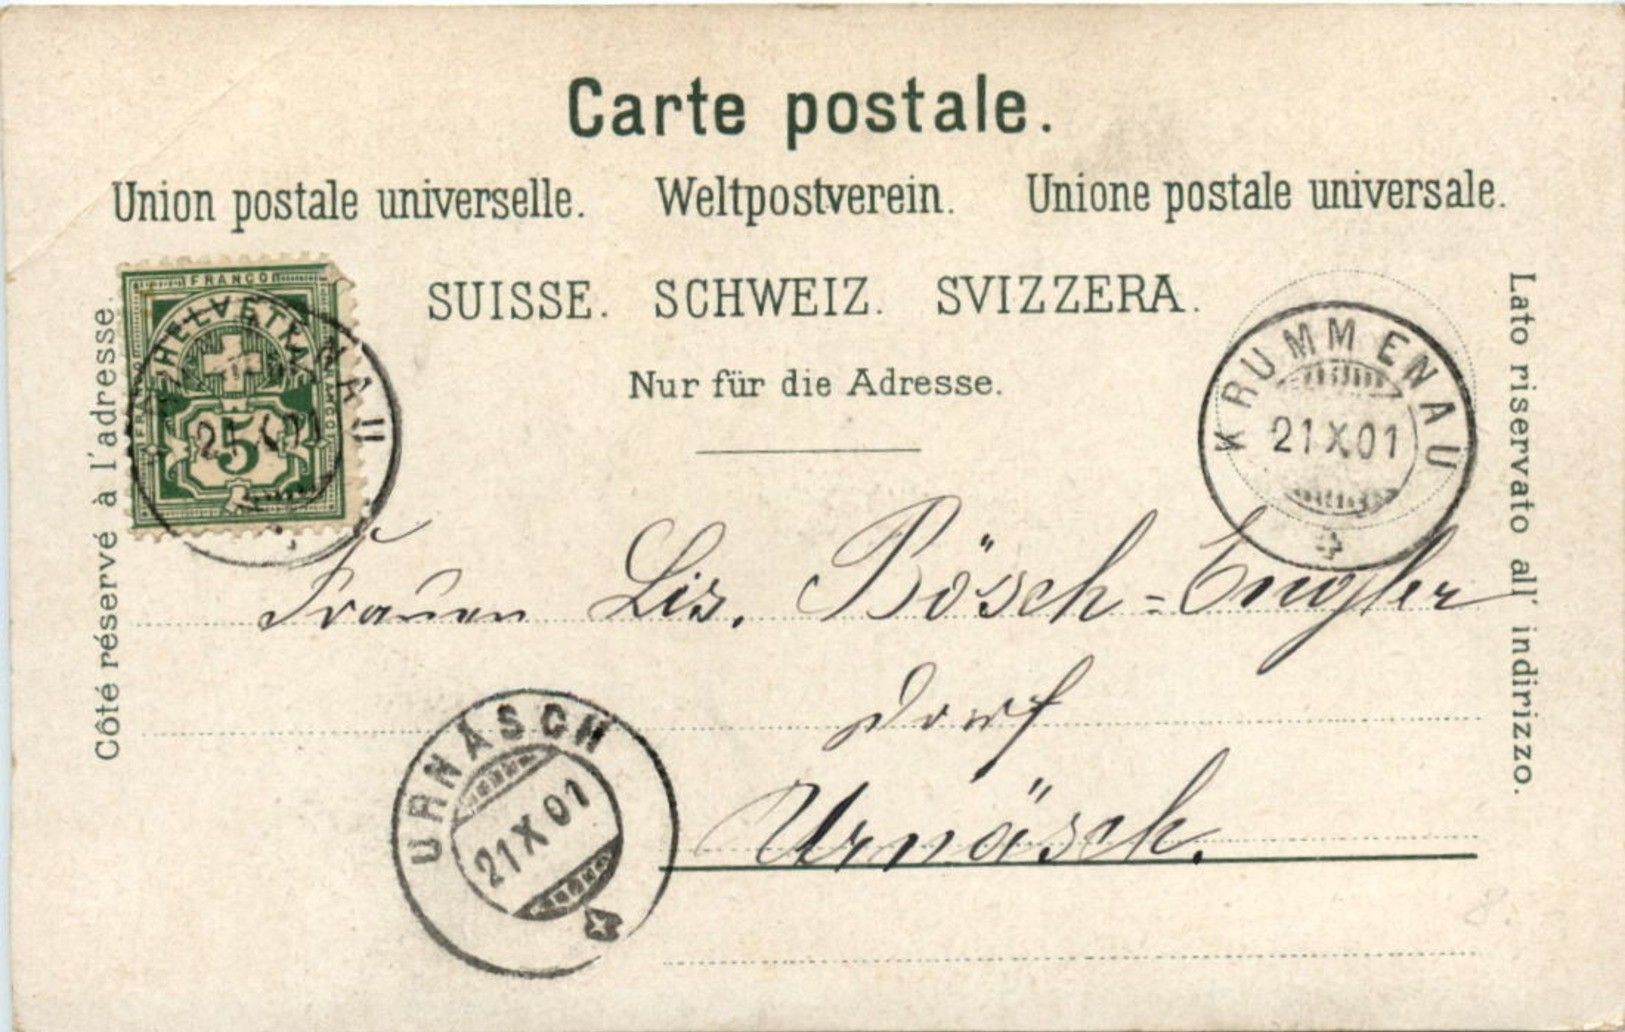 Carte postale.
Union postale universelle. Weltpostverein. Unione postale universale.
SUISSE. SCHWEIZ. SVIZZERA.
Nur für die Adresse.
Côté réservé à l'adresse.
Lato riservato all' indirizzo.
FRANCO
HELVETIA
5
KRUMMENAU
21 X 01
Frauen Lis. Bösch-Engler
Dorf
Urnäsch.
URNÄSCH
21 X 01
8.